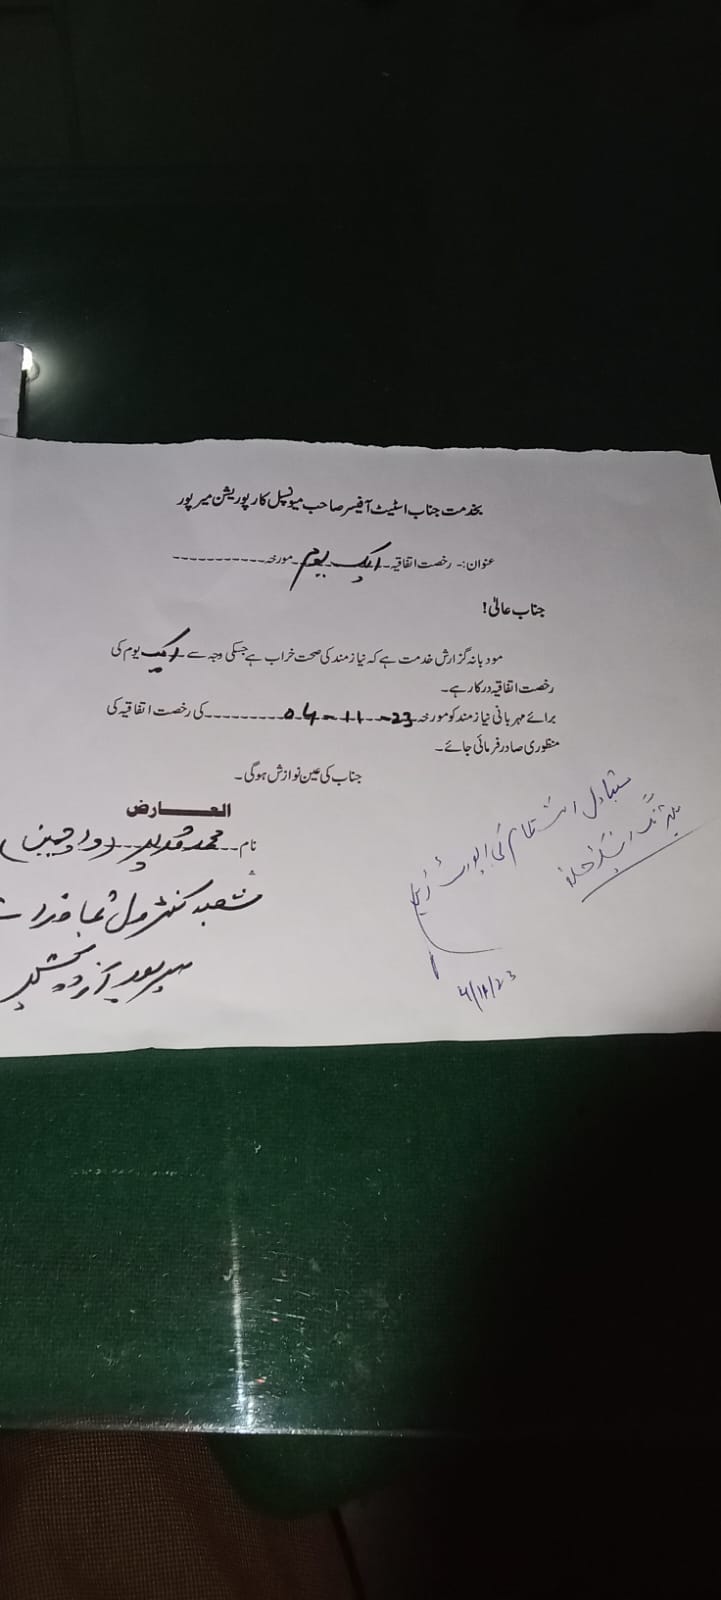 بخدمت جناب اسٹیٹ آفیسر صاحب میونسپل کارپوریشن میرپور
عنوان:۔ رخصت اتفاقیہ ایک یوم مورخہ------------
جناب عالیٰ!
مودبانہ گزارش خدمت ہے کہ نیازمند کی صحت خراب ہے جسکی وجہ سے ایک یوم کی
رخصت اتفاقیہ درکار ہے۔
برائے مہربانی نیازمند کو مورخہ 04-11-23 کی رخصت اتفاقیہ کی
منظوری صادر فرمائی جائے۔
جناب کی عین نوازش ہوگی۔
العارض
نام محمد قدیر (واچمین)
شعبہ کنٹرول تجاوزات
میرپور آزاد کشمیر
متبادل انتظام کی رپورٹ
4/11/23